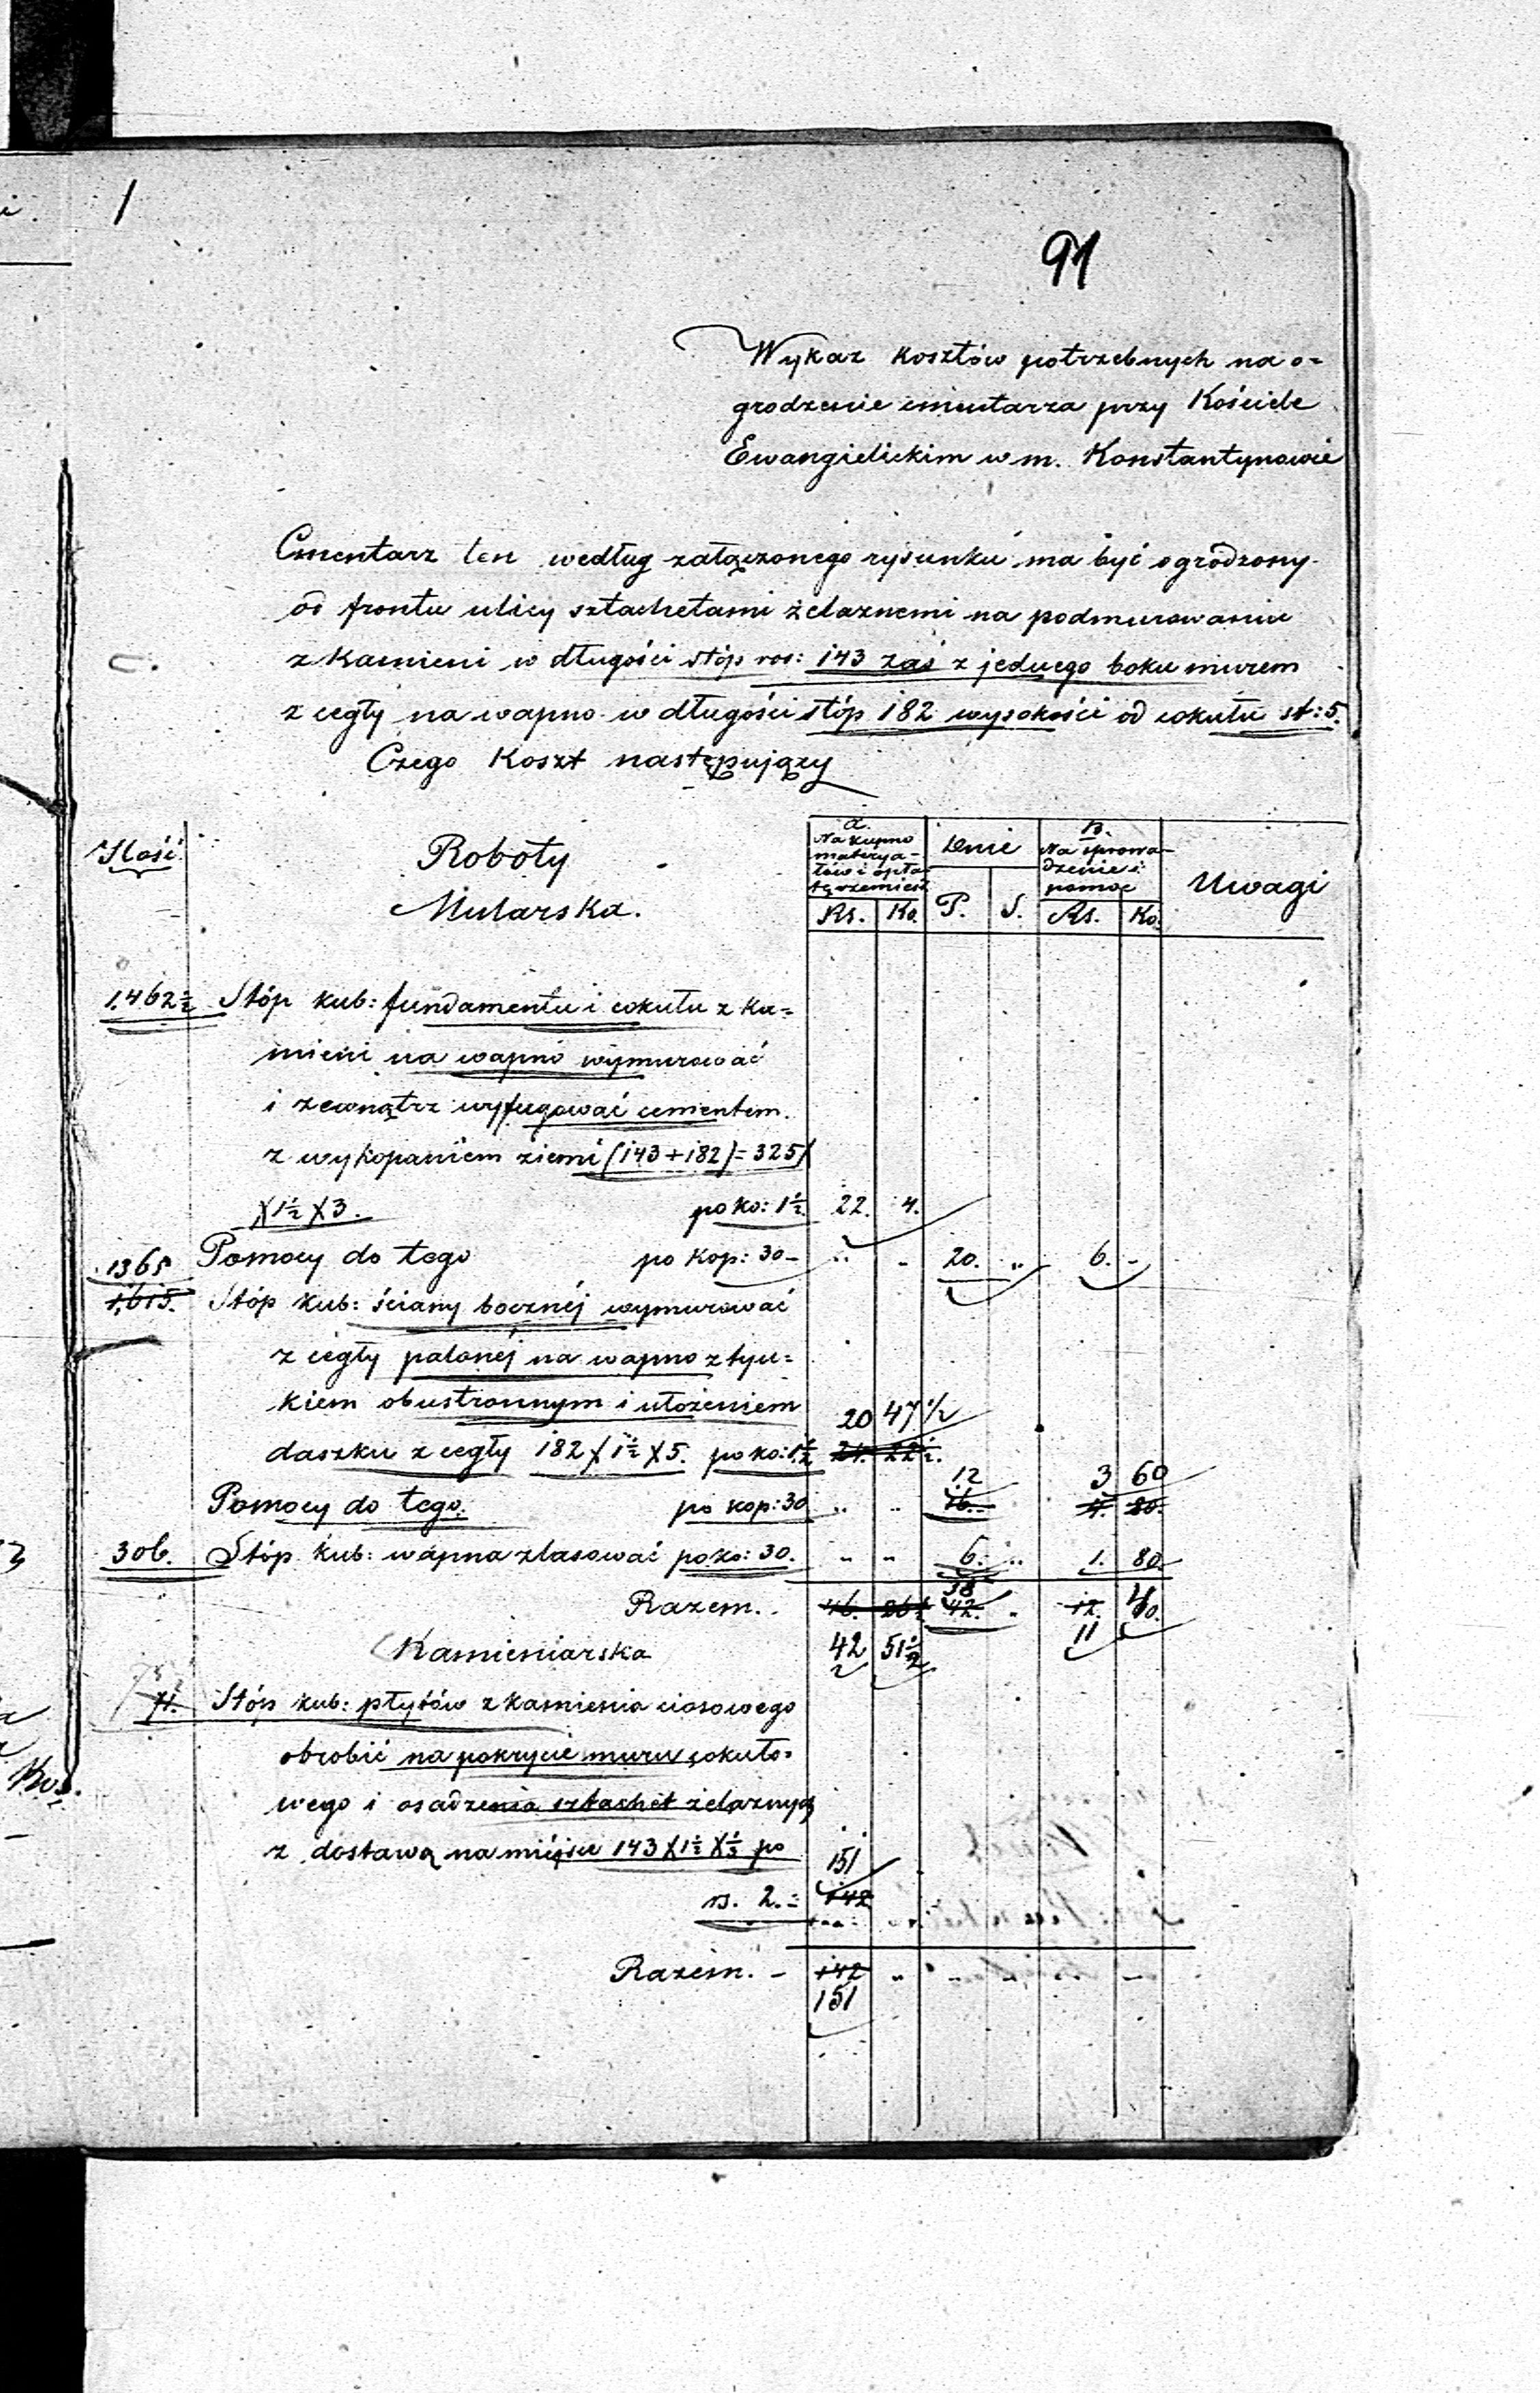 1
91
Wykaz kosztów potrzebnych na o=
grodzenie cmentarza przy Kościele
Ewangielickim w m. Konstantynowie
Cmentarz ten według załączonego rysunku ma być ogrodzony
od frontu ulicy sztachetami żelaznemi na podmurowaniu
z kamieni w długości stóp ros: 143 zaś z jednego boku murem
z cegły na wapno w długości stóp 182 wysokości od cokułu st: 5.
Czego koszt następujący
Ilość. Roboty Mularska. a. Na kupno materya-łów i opła-tę rzemieśl. Rs. Ko. Dnie P. S. B. Na sprowa-dzenie i pomoc Rs. Ko. Uwagi
1.462½ Stóp kub: fundamentu i cokułu z ka=
mieni na wapno wymurować
i zewnątrz wyfugować cementem.
z wykopaniem ziemi (143+182)=325/
X 1½ X 3. po ko: 1½. 22. 4.
Pomocy do tego po kop: 30 - .. - 20. .. 6. -
1365
1,615. Stóp kub: ściany bocznéj wymurować
z cegły palonéj na wapno z tyn=
kiem obustronnym i ułożeniem
20 47½
daszku z cegły 182 X 1½ X 5. po ko: 1½ 24. 22½.
12 3 60
Pomocy do tego. po kop: 30 .. .. 16. 4. 80.
306. Stóp kub: wapna zlasować po ko: 30. .. .. 6. .. 1. 80
38 4
Razem. 46. 26½ 42. .. 12. 60.
42 51½ 11
Kamieniarska
75
71. Stóp kub: płytów z kamienia ciosowego
obrobić na pokrycie muru cokuło=
wego i osadzenia sztachet żelaznych
z dostawą na miejsce 143 X 1½ X ⅓ po
151
rs. 2. = 142
Razem. - 142 .. .. .. .. -
151